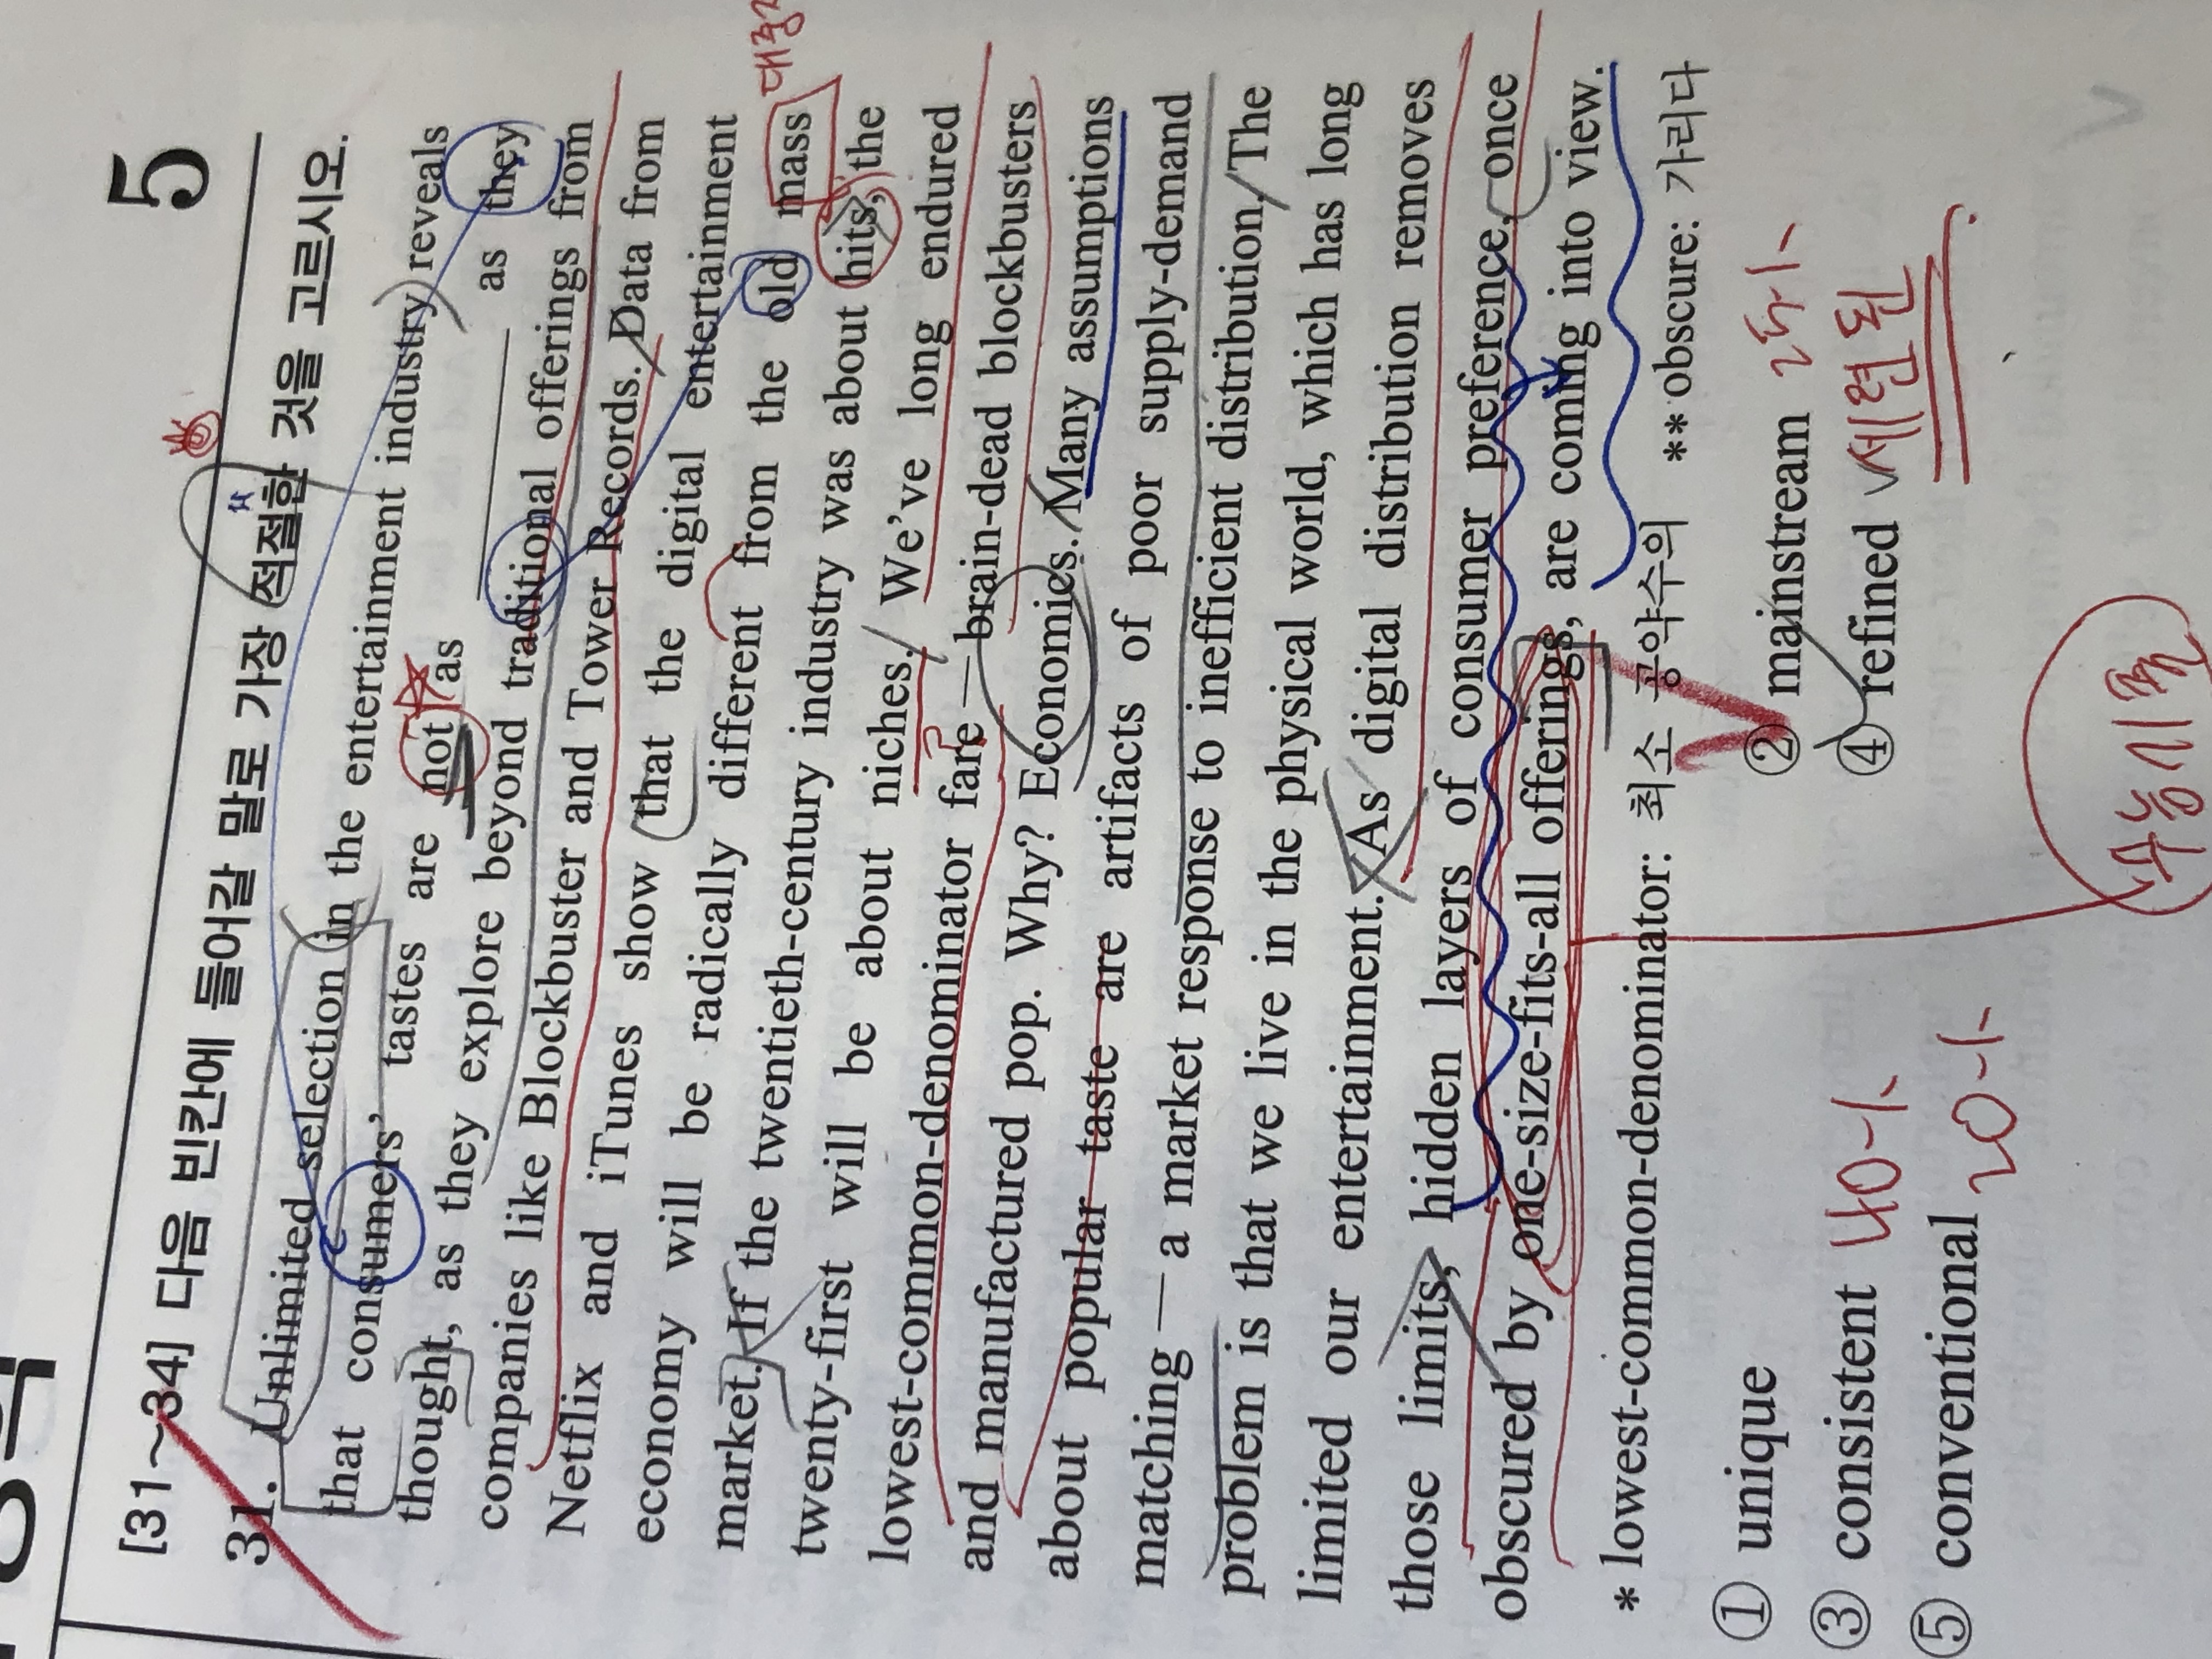 5
[31~34] 다음 빈칸에 들어갈 말로 가장 적절한 것을 고르시오.
31. Unlimited selection in the entertainment industry reveals
that consumers' tastes are not as ________ as they
thought, as they explore beyond traditional offerings from
companies like Blockbuster and Tower Records. Data from
Netflix and iTunes show that the digital entertainment
economy will be radically different from the old mass
market. If the twentieth-century industry was about hits, the
twenty-first will be about niches. We've long endured
lowest-common-denominator fare — brain-dead blockbusters
and manufactured pop. Why? Economics. Many assumptions
about popular taste are artifacts of poor supply-demand
matching — a market response to inefficient distribution. The
problem is that we live in the physical world, which has long
limited our entertainment. As digital distribution removes
those limits, hidden layers of consumer preference, once
obscured by one-size-fits-all offerings, are coming into view.
* lowest-common-denominator: 최소 공약수의 ** obscure: 가리다
① unique ② mainstream
③ consistent ④ refined 세련된
⑤ conventional